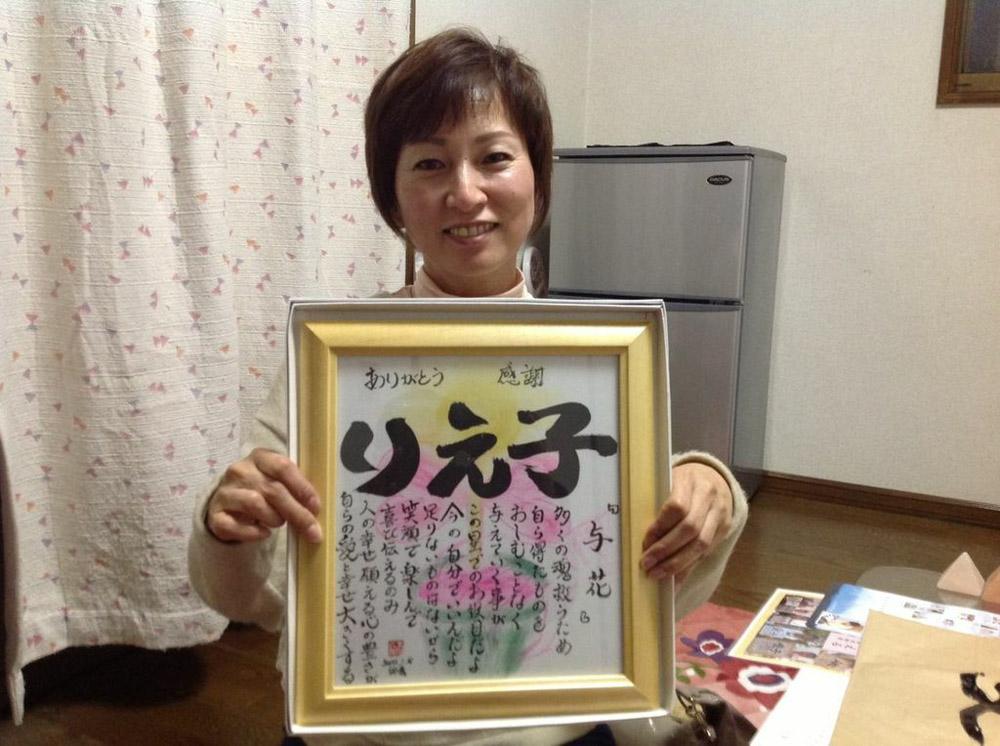 ありがとう 感謝
りえ子
「与花」
多くの魂救うため
自ら得たものを
おしむことなく
与えていく事が
この星でのお役目だよ
今の自分でいいんだよ
足りないものはないから
笑顔で楽しんで
喜び伝えるのみ
人の幸せ願える心の豊さが
自らの と幸せ大きくする